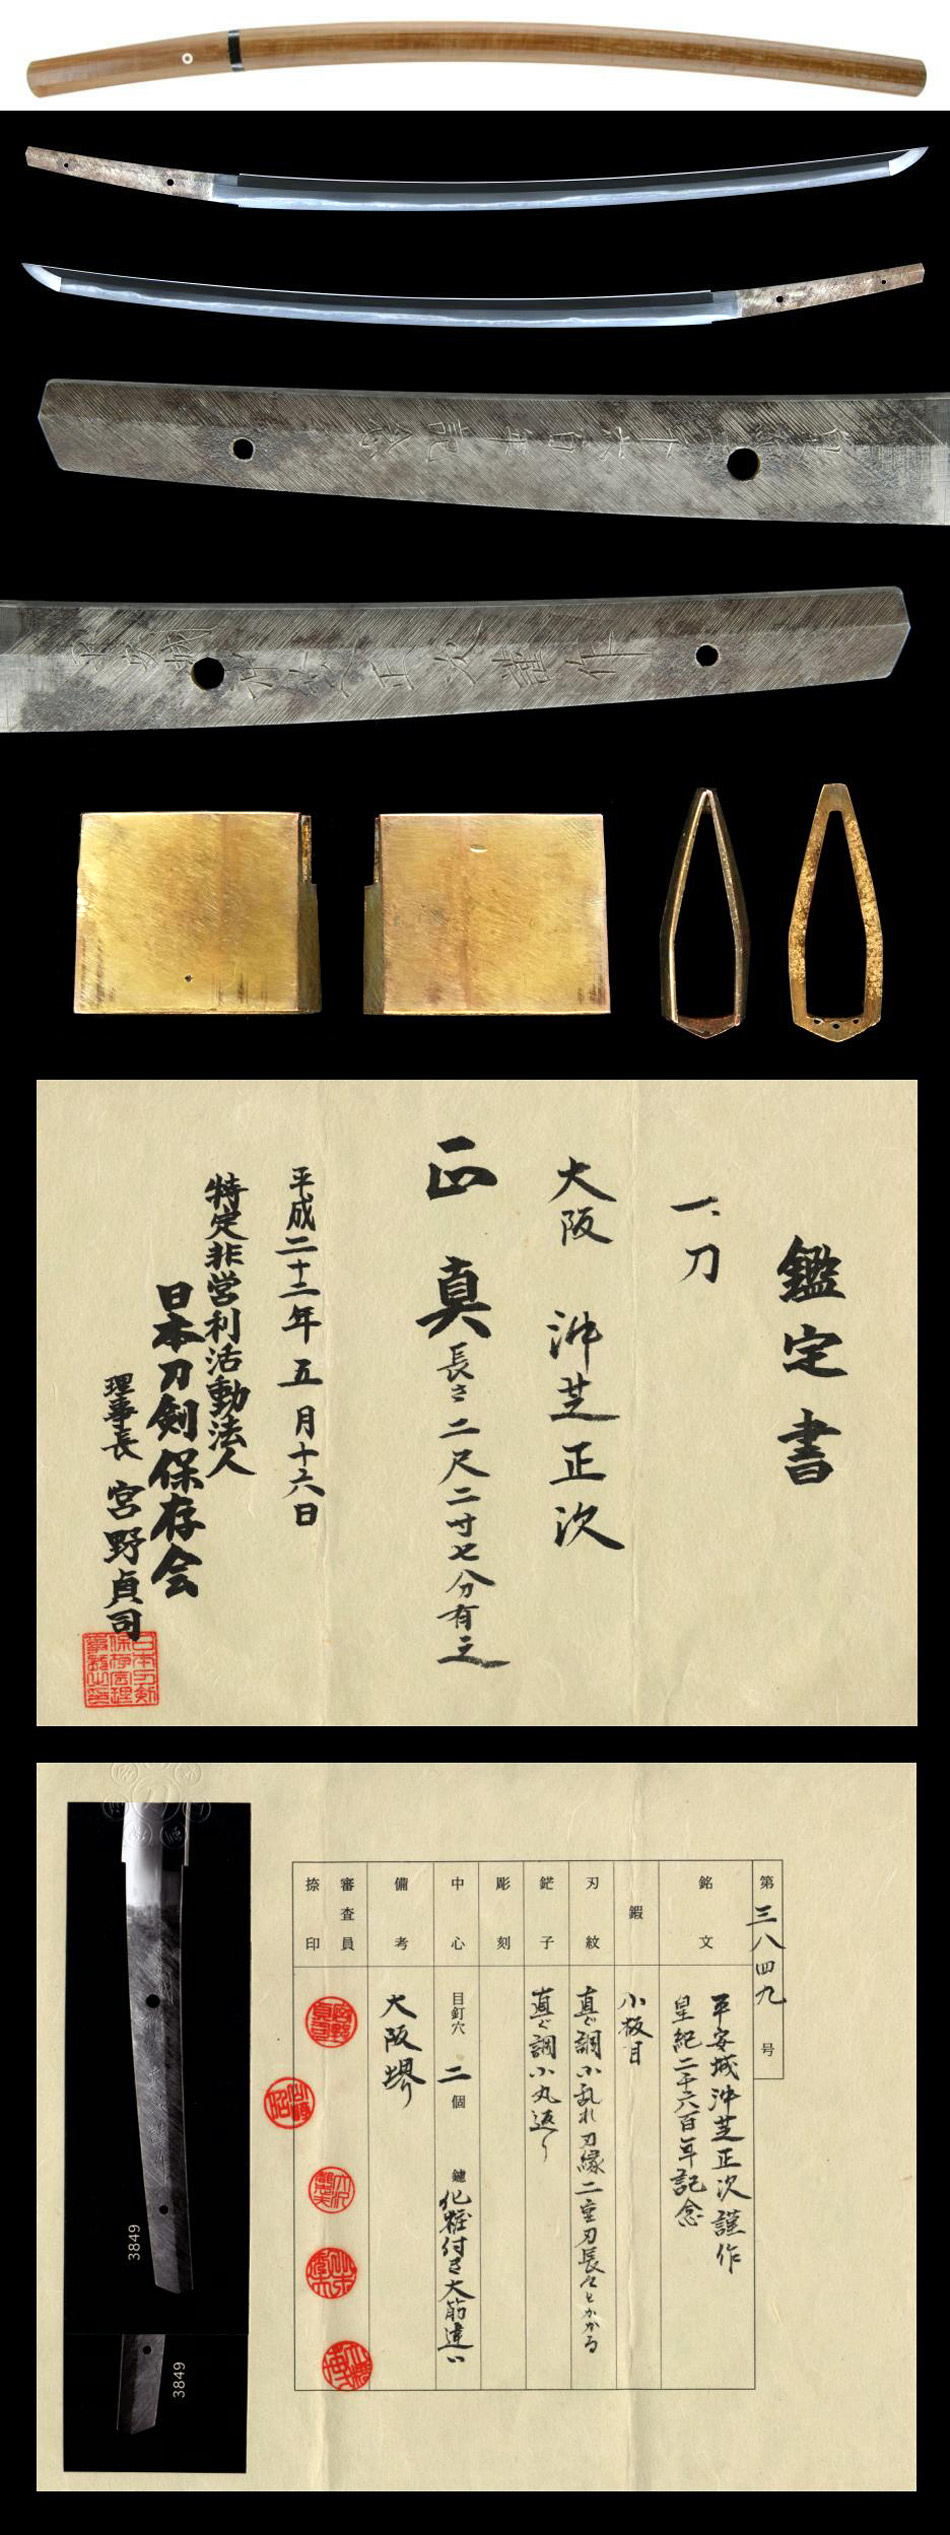 皇紀二千六百年記念
平安城沖芝正次謹作
鑑定書
一、刀
大阪 沖芝正次
正真 長さ二尺二寸七分有之
平成二十二年五月十六日
特定非営利活動法人
日本刀剣保存会
理事長 宮野貞司
第三八四九号
銘文
平安城沖芝正次謹作
皇紀二千六百年記念
鍜
小板目
刃紋
直ぐ調小乱れ刃縁二重刃長々とかかる
鋩子
直ぐ調小丸返り
彫刻
中心
目釘穴 二個 鑢 化粧付き大筋違い
備考
大阪堺
審査員
捺印
3849
3849